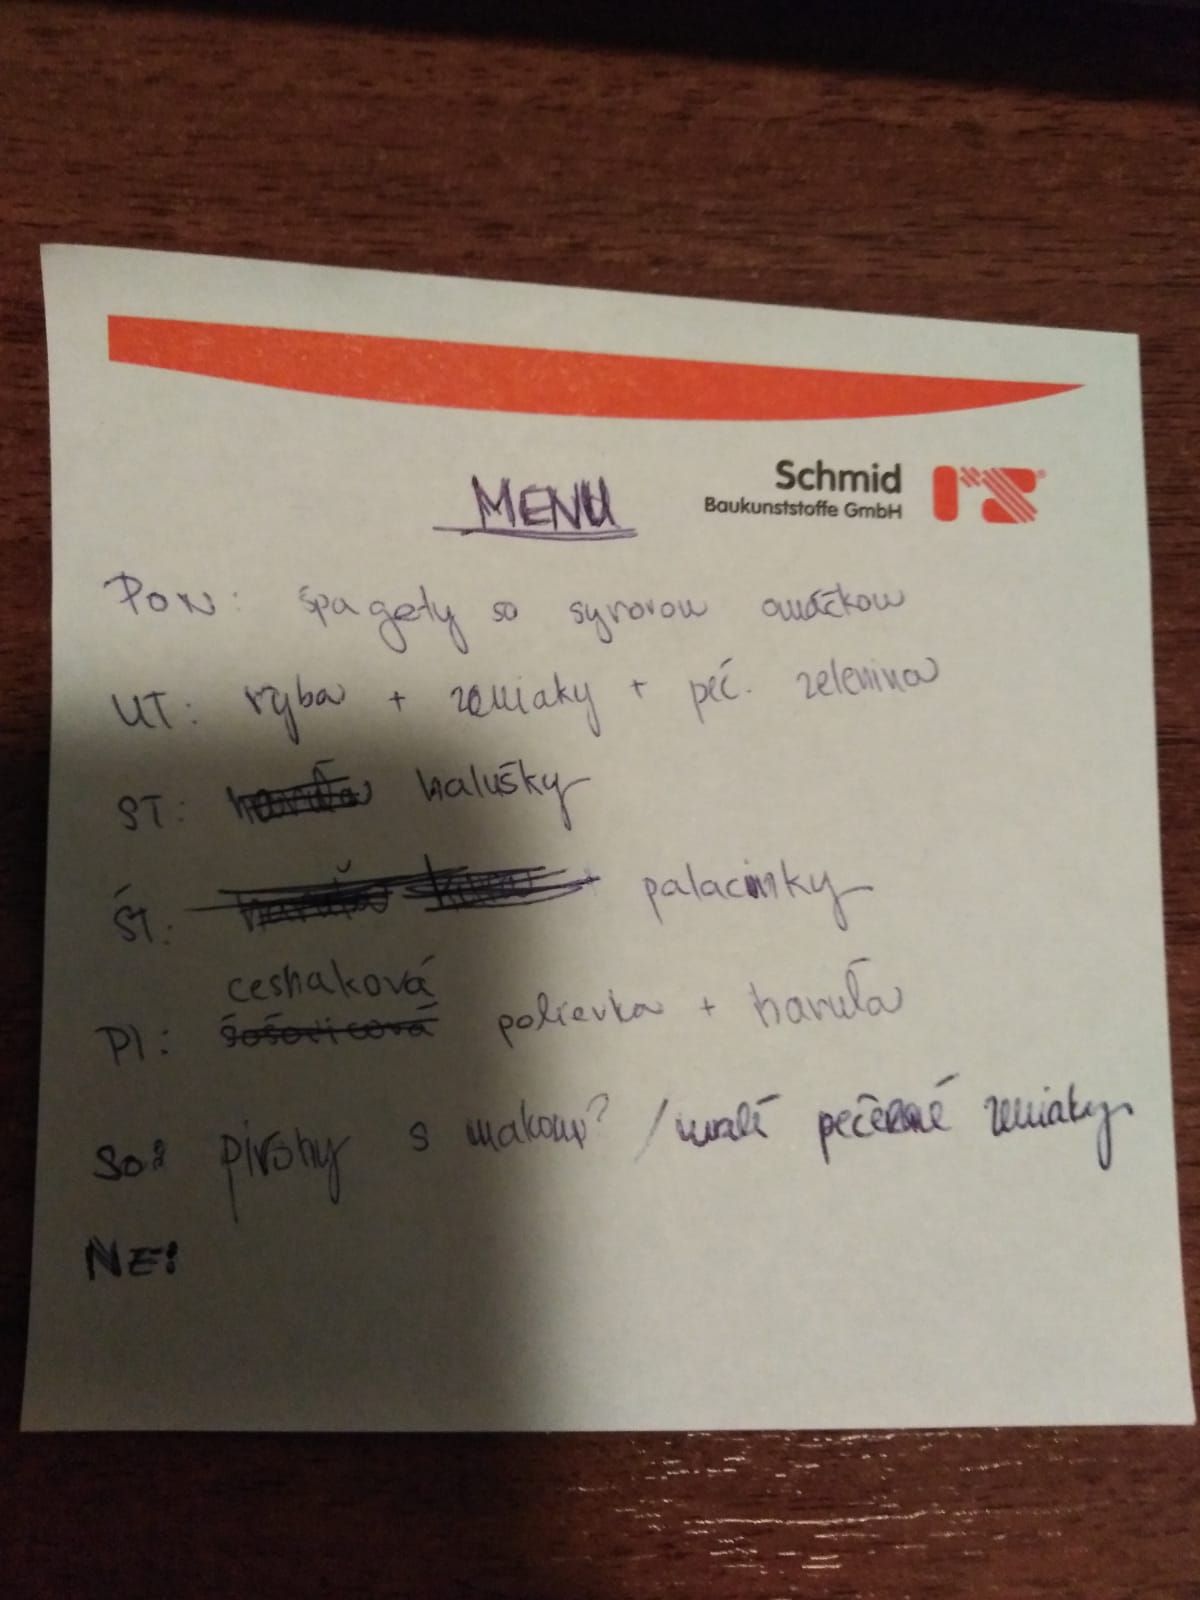 Schmid
Baukunststoffe GmbH
MENU
PON: špagety so syrovou omáčkou
UT: ryba + zemiaky + peč. zelenina
ST: halušky
ŠT: palacinky
cesnaková
PI: šošovicová polievka + haruľa
SO: pirohy s makom? / malé pečené zemiaky
NE: